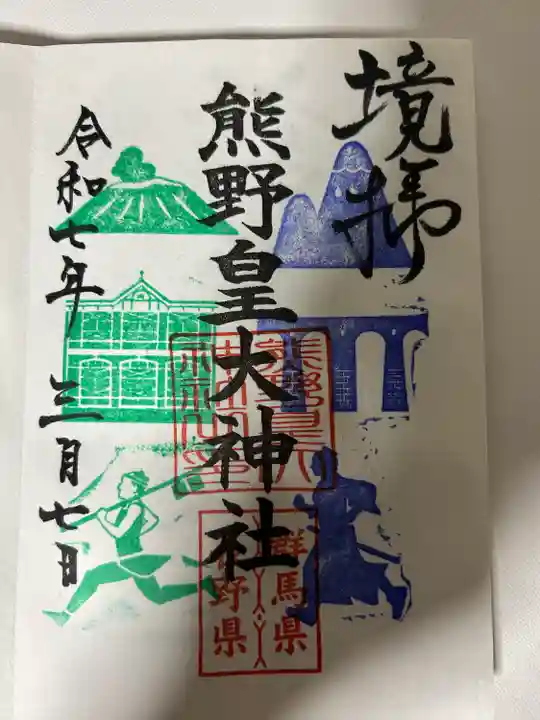 境拝
熊野皇大神社
群馬県
長野県
令和七年 三月七日